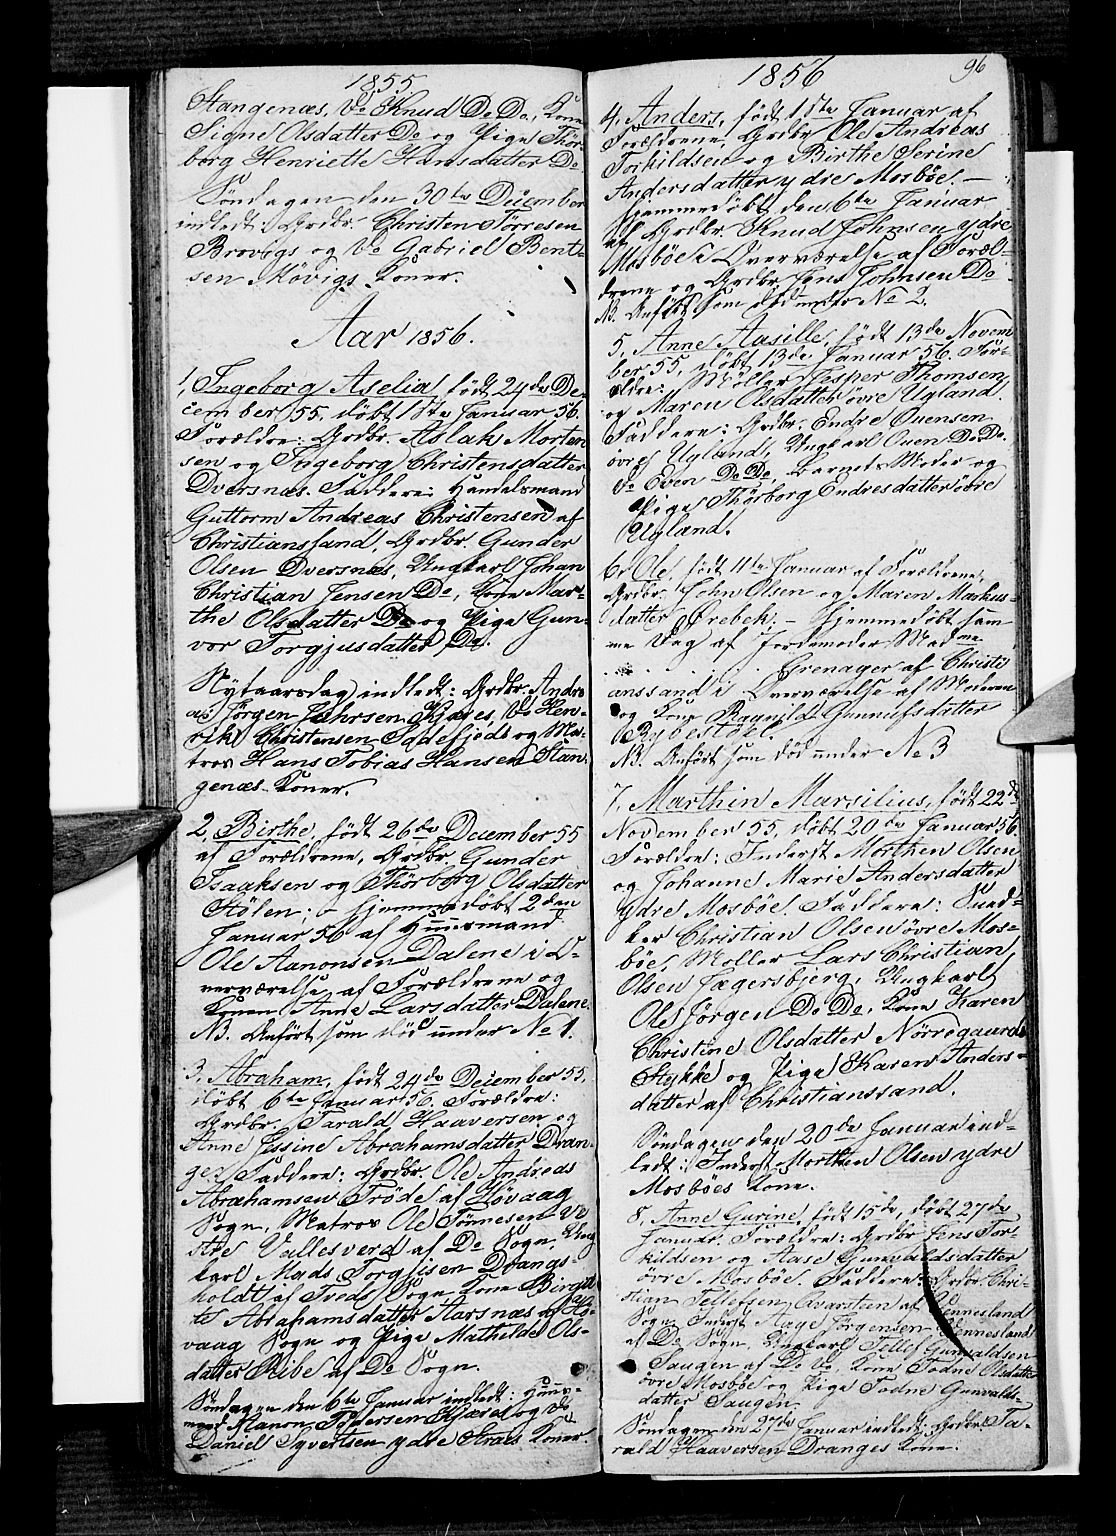 1855.
Stangenæs, Do Knud Do Do, Kone
Signe Olsdatter Do og Pige Thor-
borg Henriette Hansdatter Do
Søndagen den 30te December
indledt: Grdbr. Christen Torresen
Brovigs og Do Gabriel Bent-
sen Møvigs Koner.
Aar 1856.
1, Ingeborg Aselia, født 24de De-
cember 55. døbt 1ste Januar 56.
Forældre: Grdbr. Aslak Morten-
sen og Ingeborg Christensdatter
Dversnæs. Faddere: Handelsmand
Guttorm Andreas Christensen af
Christianssand, Grdbr. Gunder
Olsen Dversnæs, Ungkarl Johan
Christian Jensen Do, Kone Mar-
the Olsdatter Do og Pige Gun-
vor Torgjusdatter Do.
Nytaarsdag indledt: Grdbr. Andre-
as Jørgen Jahrsen Kjøges, Do Hen-
rik Christensen og Ma-
tros Hans Tobias Hansen Stan-
genæs Koner.
2, Birthe, født 26de December 55
af Forældrene, Grdbr. Gunder
Isaaksen og Thorborg Olsdatter
Stølen; - hjemmedøbt 2den
Januar 56 af Huusmand
Ole Aanonsen Dalene i O-
verværelse af Forældrene og
Konen Anne Larsdatter Dalene.
NB. Anført som død under No 1.
3, Abraham, født 24de December 55.
døbt 6te Januar 56. Forældre:
Grdbr. Tarald Haaversen og
Anne Jesine Abrahamsdatter Dran-
ge. Faddere: Grdbr. Ole Andreas
Abrahamsen Trøde af Høvaag
Sogn, Matros Ole Tønnesen Ve-
stre Vallesverd af Do Sogn, Ung-
karl Mads Torgjisen Drangs-
holdt af Tveds Sogn Kone Birgit-
te Abrahamsdatter Aarsnæs af Hø-
vaag Sogn og Pige Mathilde Ols-
datter Ribe af Do Sogn.
Søndagen den 6te Januar indledt: Huus-
mand Aanon Pedersen Kjæret og Do
Daniel Syvertsen ydre Strais Koner.
1856
96
4, Anders, født 1ste Januar af
Forældrene, Grdbr. Ole Andreas
Torkildsen og Birthe Serine
Andersdatter ydre Mosbøe. -
Hjemmedøbt den 6te Januar
af Grdbr. Knud Johnsen ydre
Mosbøe i Overværelse af Foræl-
drene og Grdbr. Jens Johnsen Do
NB. Anført som død under No 2.
5, Anne Aasille, født 13de Novem-
ber 55, døbt 13de Januar 56. For-
ældre: Møller Jesper Thomsen
og Maren Olsdatter øvre Ugland.
Faddere: Grdbr. Endre Ovensen
øvre Ugland, Ungkarl Oven Do Do.
Do Even Do Do. Barnets Moder og
Pige Thorborg Endresdatter øvre
Ugland.
6, Ole, født 11te Januar af Forældrene,
Grdbr. John Olsen og Maren Markus-
datter Ørebek. - Hjemmedøbt sam-
me Dag af Jordemoder Madme
. . . . . . . Grenager af Christi-
anssand i Overværelse af Moderen
og Kone Ragnild Gunnufsdatter
Bybestøel.
NB. Anført som død under No 3
7, Marthin Marsilius, født 22de
November 55, døbt 20de Januar 56.
Forældre: Inderst Morthen Olsen
og Johanne Marie Andersdatter
ydre Mosbøe. Faddere: Sned-
ker Christian Olsen øvre Mos-
bøe, Møller Lars Christian
Olsen Jægersbjerg, Ungkarl
Ole Jørgen Do Do, Kone Karen
Christine Olsdatter Nørregaards
Stykke og Pige Karen Anders-
datter af Christianssand.
Søndagen den 20de Januar ind-
ledt: Inderst Morthen Olsen ydre
Mosbøes Kone.
8, Anne Gurine, født 15de, døbt 27de
Januar. Forældre: Grdbr. Jens Tor-
kildsen og Aase Gunvaldsdatter
øvre Mosbøe. Faddere: Grdbr. Chri-
stian Tellefsen Qvarsteen af Vennesland
Sogn Inderst Aage Jørgensen Vennesland
af Do Sogn, Ungkarl Tellef Gunvaldsen
Saugen af Do Do, Kone Todne Olsdatter
øvre Mosbøe og Pige Todne Gunvalds-
datter Saugen.
Søndagen den 27de Januar indledt: Grdbr. Ta-
rald Haaversen Dranges Kone.